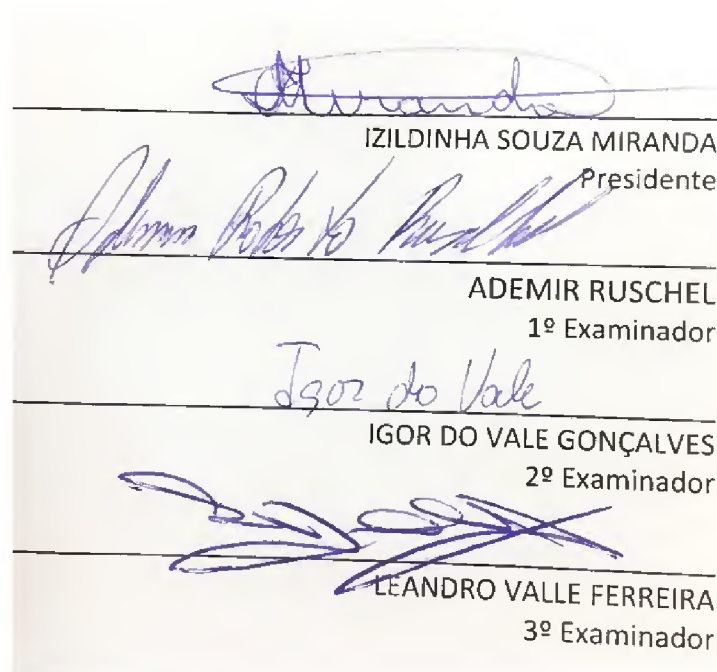 Miranda
IZILDINHA SOUZA MIRANDA
Presidente
Ademir Roberto Ruschel
ADEMIR RUSCHEL
1º Examinador
Igor do Vale
IGOR DO VALE GONÇALVES
2º Examinador
LEANDRO VALLE FERREIRA
3º Examinador